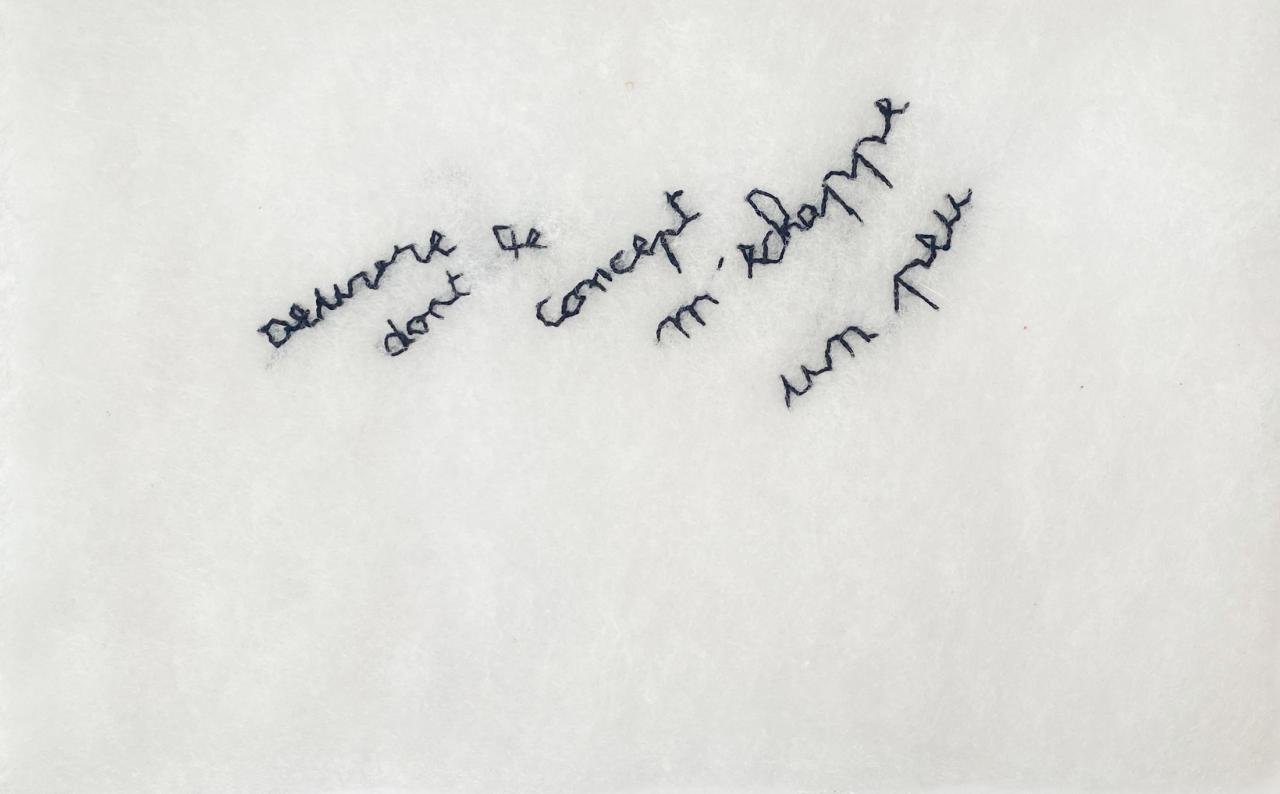 oeuvre
dont le
concept
m'echappe
un peu